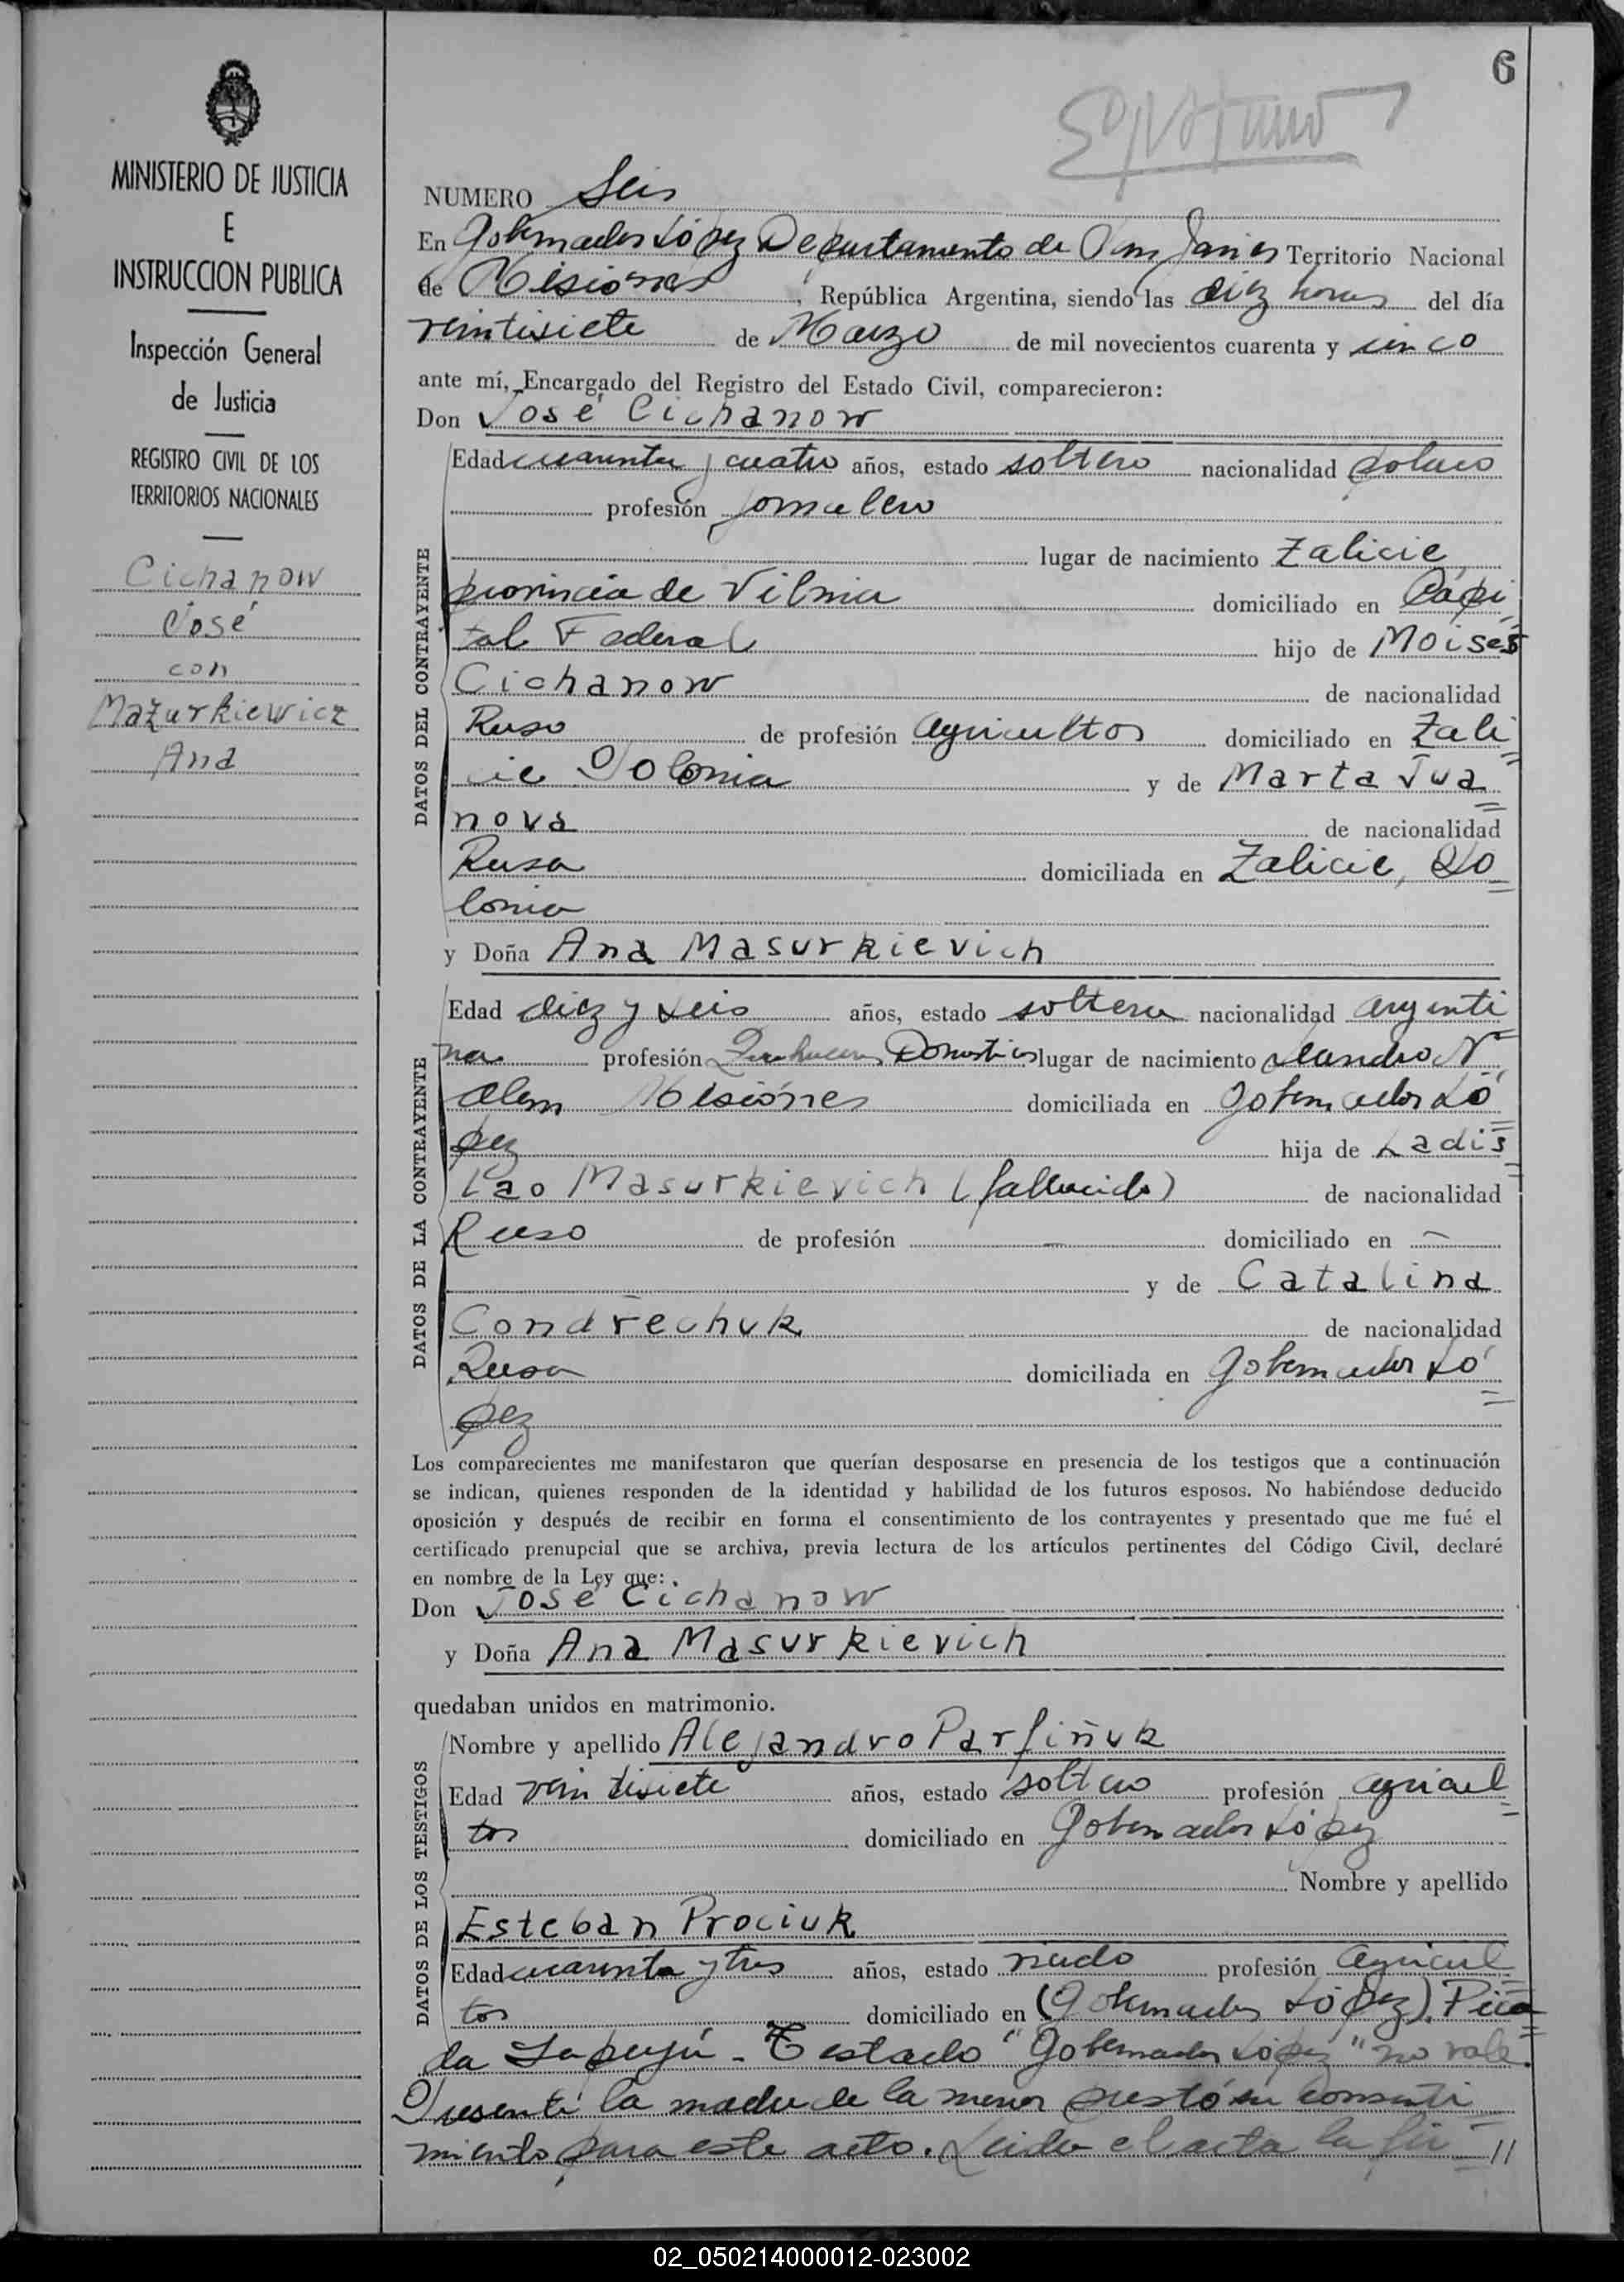 6
MINISTERIO DE JUSTICIA
E
INSTRUCCION PUBLICA
Inspección General
de Justicia
REGISTRO CIVIL DE LOS
TERRITORIOS NACIONALES
Cichanow
José
con
Mazurkiewicz
Ana
NUMERO Seis
En Gobernador López Departamento de San Javier Territorio Nacional
de Misiones, República Argentina, siendo las diez horas del día
veintisiete de Marzo de mil novecientos cuarenta y cinco
ante mí, Encargado del Registro del Estado Civil, comparecieron:
Don José Cichanow
DATOS DEL CONTRAYENTE
Edad cuarenta y cuatro años, estado soltero nacionalidad polaco
profesión jornalero
lugar de nacimiento Zalicie
provincia de Vilnia domiciliado en Cápi
tal Federal hijo de Moises
Cichanow de nacionalidad
Ruso de profesión agricultor domiciliado en Zali
cie Polonia y de Marta Jua
nova de nacionalidad
Rusa domiciliada en Zalicie, Po
lonia
y Doña Ana Masurkievich
DATOS DE LA CONTRAYENTE
Edad diez y seis años, estado soltera nacionalidad argenti
na profesión Quehaceres Domesticos lugar de nacimiento Leandro N.
Alem Misiones domiciliada en Gobernador Ló
pez hija de Ladis
lao Masurkievich (fallecido) de nacionalidad
Ruso de profesión — domiciliado en —
y de Catalina
Condrechuk de nacionalidad
Rusa domiciliada en Gobernador Ló
pez
Los comparecientes me manifestaron que querían desposarse en presencia de los testigos que a continuación
se indican, quienes responden de la identidad y habilidad de los futuros esposos. No habiéndose deducido
oposición y después de recibir en forma el consentimiento de los contrayentes y presentado que me fué el
certificado prenupcial que se archiva, previa lectura de los artículos pertinentes del Código Civil, declaré
en nombre de la Ley que:
Don José Cichanow
y Doña Ana Masurkievich
quedaban unidos en matrimonio.
DATOS DE LOS TESTIGOS
Nombre y apellido Alejandro Parfiñuk
Edad veintisiete años, estado soltero profesión agricul
tor domiciliado en Gobernador López
Nombre y apellido
Esteban Prociuk
Edad cuarenta y tres años, estado viudo profesión agricul
tor domiciliado en (Gobernador López). Pica
da Sapuyú - Testado "Gobernador López" no vale.
Presente la madre de la menor prestó su consenti
miento para este acto. Leida el acta la fir //
02_050214000012-023002